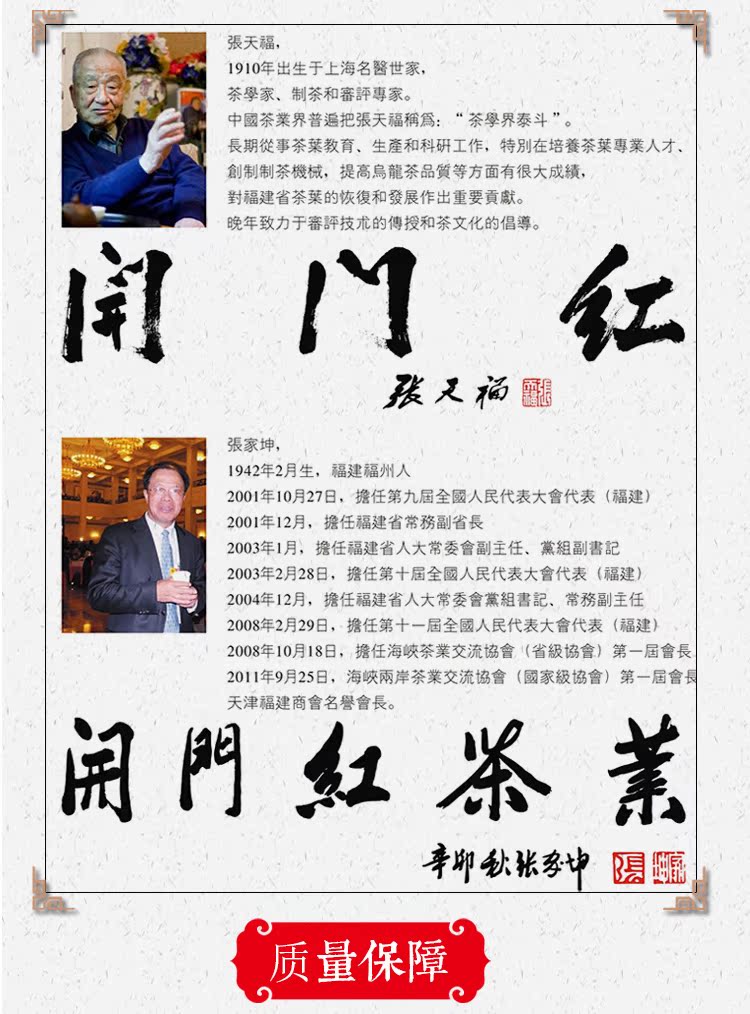 張天福，
1910年出生于上海名醫世家，
茶學家、制茶和審評專家。
中國茶業界普遍把張天福稱爲：“茶學界泰斗”。
長期從事茶葉教育、生產和科研工作，特別在培養茶葉專業人才、
創制制茶機械，提高烏龍茶品質等方面有很大成績，
對福建省茶葉的恢復和發展作出重要貢獻。
晚年致力于審評技术的傳授和茶文化的倡導。
開門红
張天福
張家坤，
1942年2月生，福建福州人
2001年10月27日，擔任第九屆全國人民代表大會代表（福建）
2001年12月，擔任福建省常務副省長
2003年1月，擔任福建省人大常委會副主任、黨組副書記
2003年2月28日，擔任第十屆全國人民代表大會代表（福建）
2004年12月，擔任福建省人大常委會黨組書記、常務副主任
2008年2月29日，擔任第十一屆全國人民代表大會代表（福建）
2008年10月18日，擔任海峽茶业交流協會（省級協會）第一屆會長
2011年9月25日，海峽兩岸茶业交流協會（國家級協會）第一屆會長
天津福建商會名譽會長。
開門紅茶業
辛卯秋张家坤
质量保障